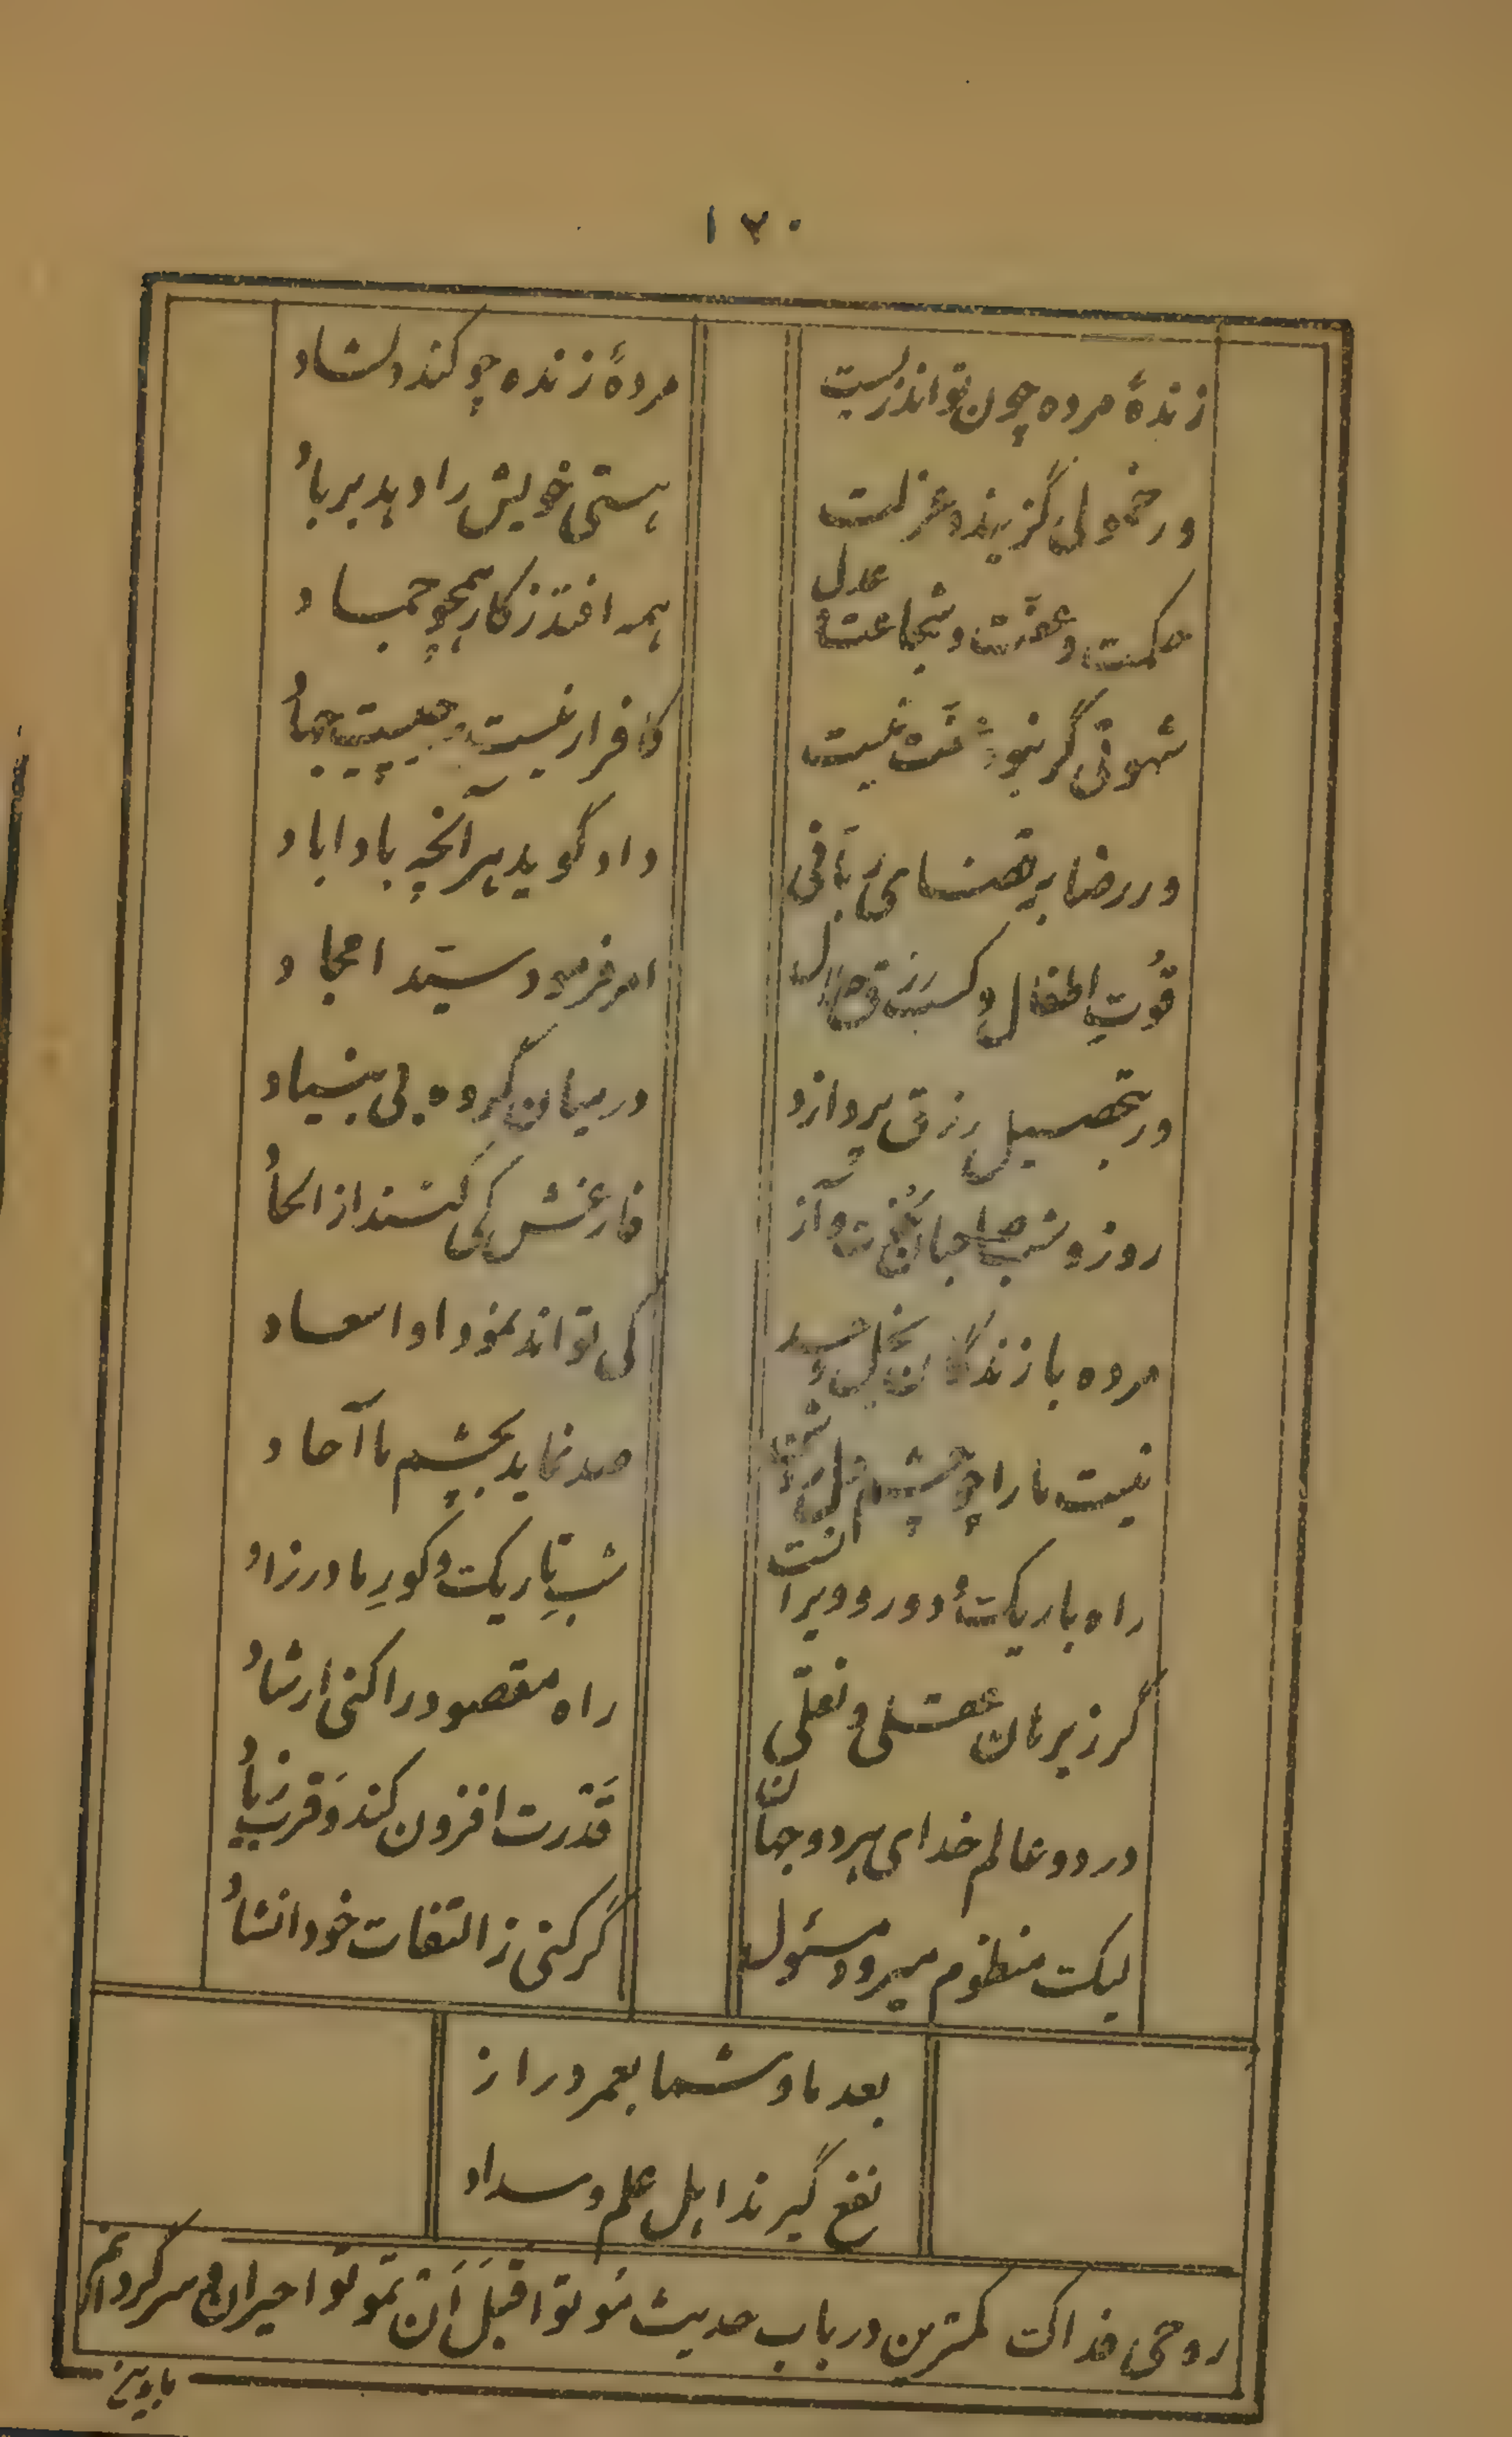 ۱۲۰
زندهٔ مرده چون تواند زیست مردهٔ زنده چو کند دلشاد
ور خمولی گزیند و عزلت هستی خویش را دهد بر باد
حکمت و عفت و شجاعت و عدل همه افتد ز کار همچو جماد
شهوتی گر نبود عفت نیست کافرار نیست چیست جهاد
ور رضا به قضای ربّانی داد گوید هر آنچه بادا باد
قُوتِ اطفال و کسب رزق حلال امر فرمود سیّد امجاد
ور بتحصیل رزق پردازد در میان گروه بی بنیاد
روز و شب صاحبان و آز فارغش کی کنند از الحاد
مرده با زندگان بخل و حسد کی تواند نمود او اسعاد
نیست ما را چو چشم دل صد نماید بچشم ما آحاد
راه باریک و دور و ویرانست شبِ تاریک و کورِ مادرزاد
گر ز برهان عقلی و نقلی راه مقصود را کنی ارشاد
در دو عالم خدای هر دو جهان قَدْرت افزون کند و قرب زیاد
لیک منظوم میرود مسئول گر کنی ز التفات خود انشاد
بعد ما و شما بعمر دراز
نفع گیرند اهل علم و سداد
روحی فداک کمترین در باب حدیث مُوتوا قَبلَ اَن تَموتوا حیران و سرگردانم